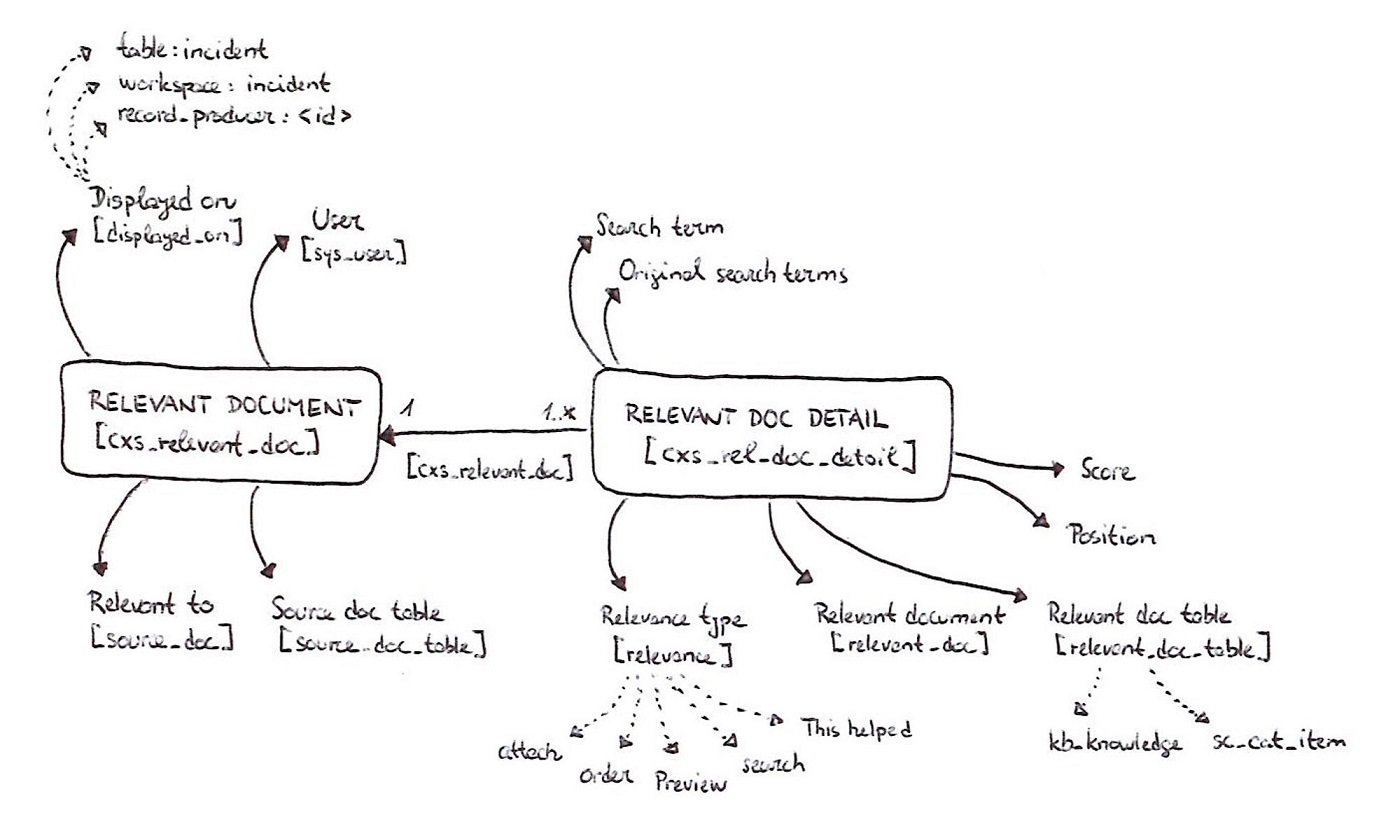 table: incident
workspace: incident
record_producer: <id>
Displayed on
[displayed_on]
User
[sys_user]
Search term
Original search terms
RELEVANT DOCUMENT
[cxs_relevant_doc]
1
1..*
[cxs_relevant_doc]
RELEVANT DOC DETAIL
[cxs_rel_doc_detail]
Score
Position
Relevant to
[source_doc]
Source doc table
[source_doc_table]
Relevance type
[relevance]
Relevant document
[relevant_doc]
Relevant doc table
[relevant_doc_table]
attach
order
Preview
search
This helped
kb_knowledge
sc_cat_item